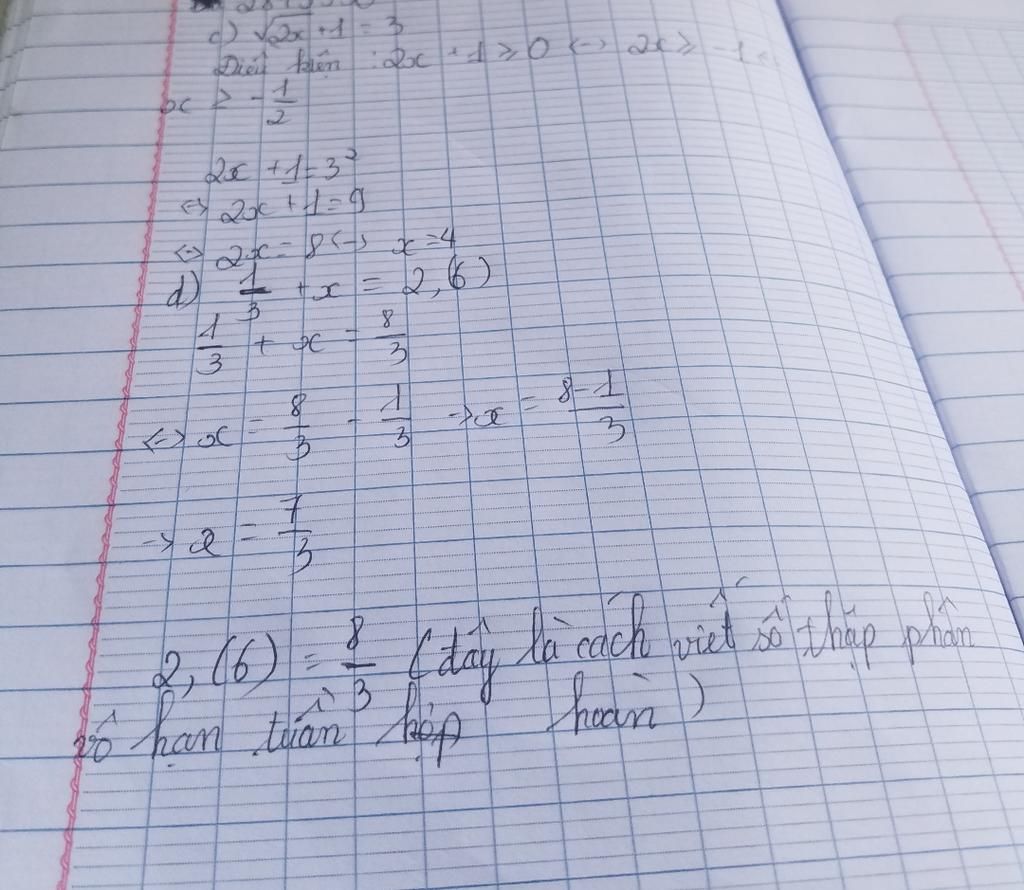 c) √2x+1 = 3
Điều kiện : 2x + 1 ≥ 0 <-> 2x ≥ -1
x ≥ -1/2
2x + 1 = 3²
<=> 2x + 1 = 9
<=> 2x = 8 <-> x = 4
d) 1/3 + x = 2,(6)
1/3 + x = 8/3
<=> x = 8/3 - 1/3 -> x = 8-1/3
-> x = 7/3
2,(6) = 8/3 (đây là cách viết số thập phân
vô hạn tuần hoàn)